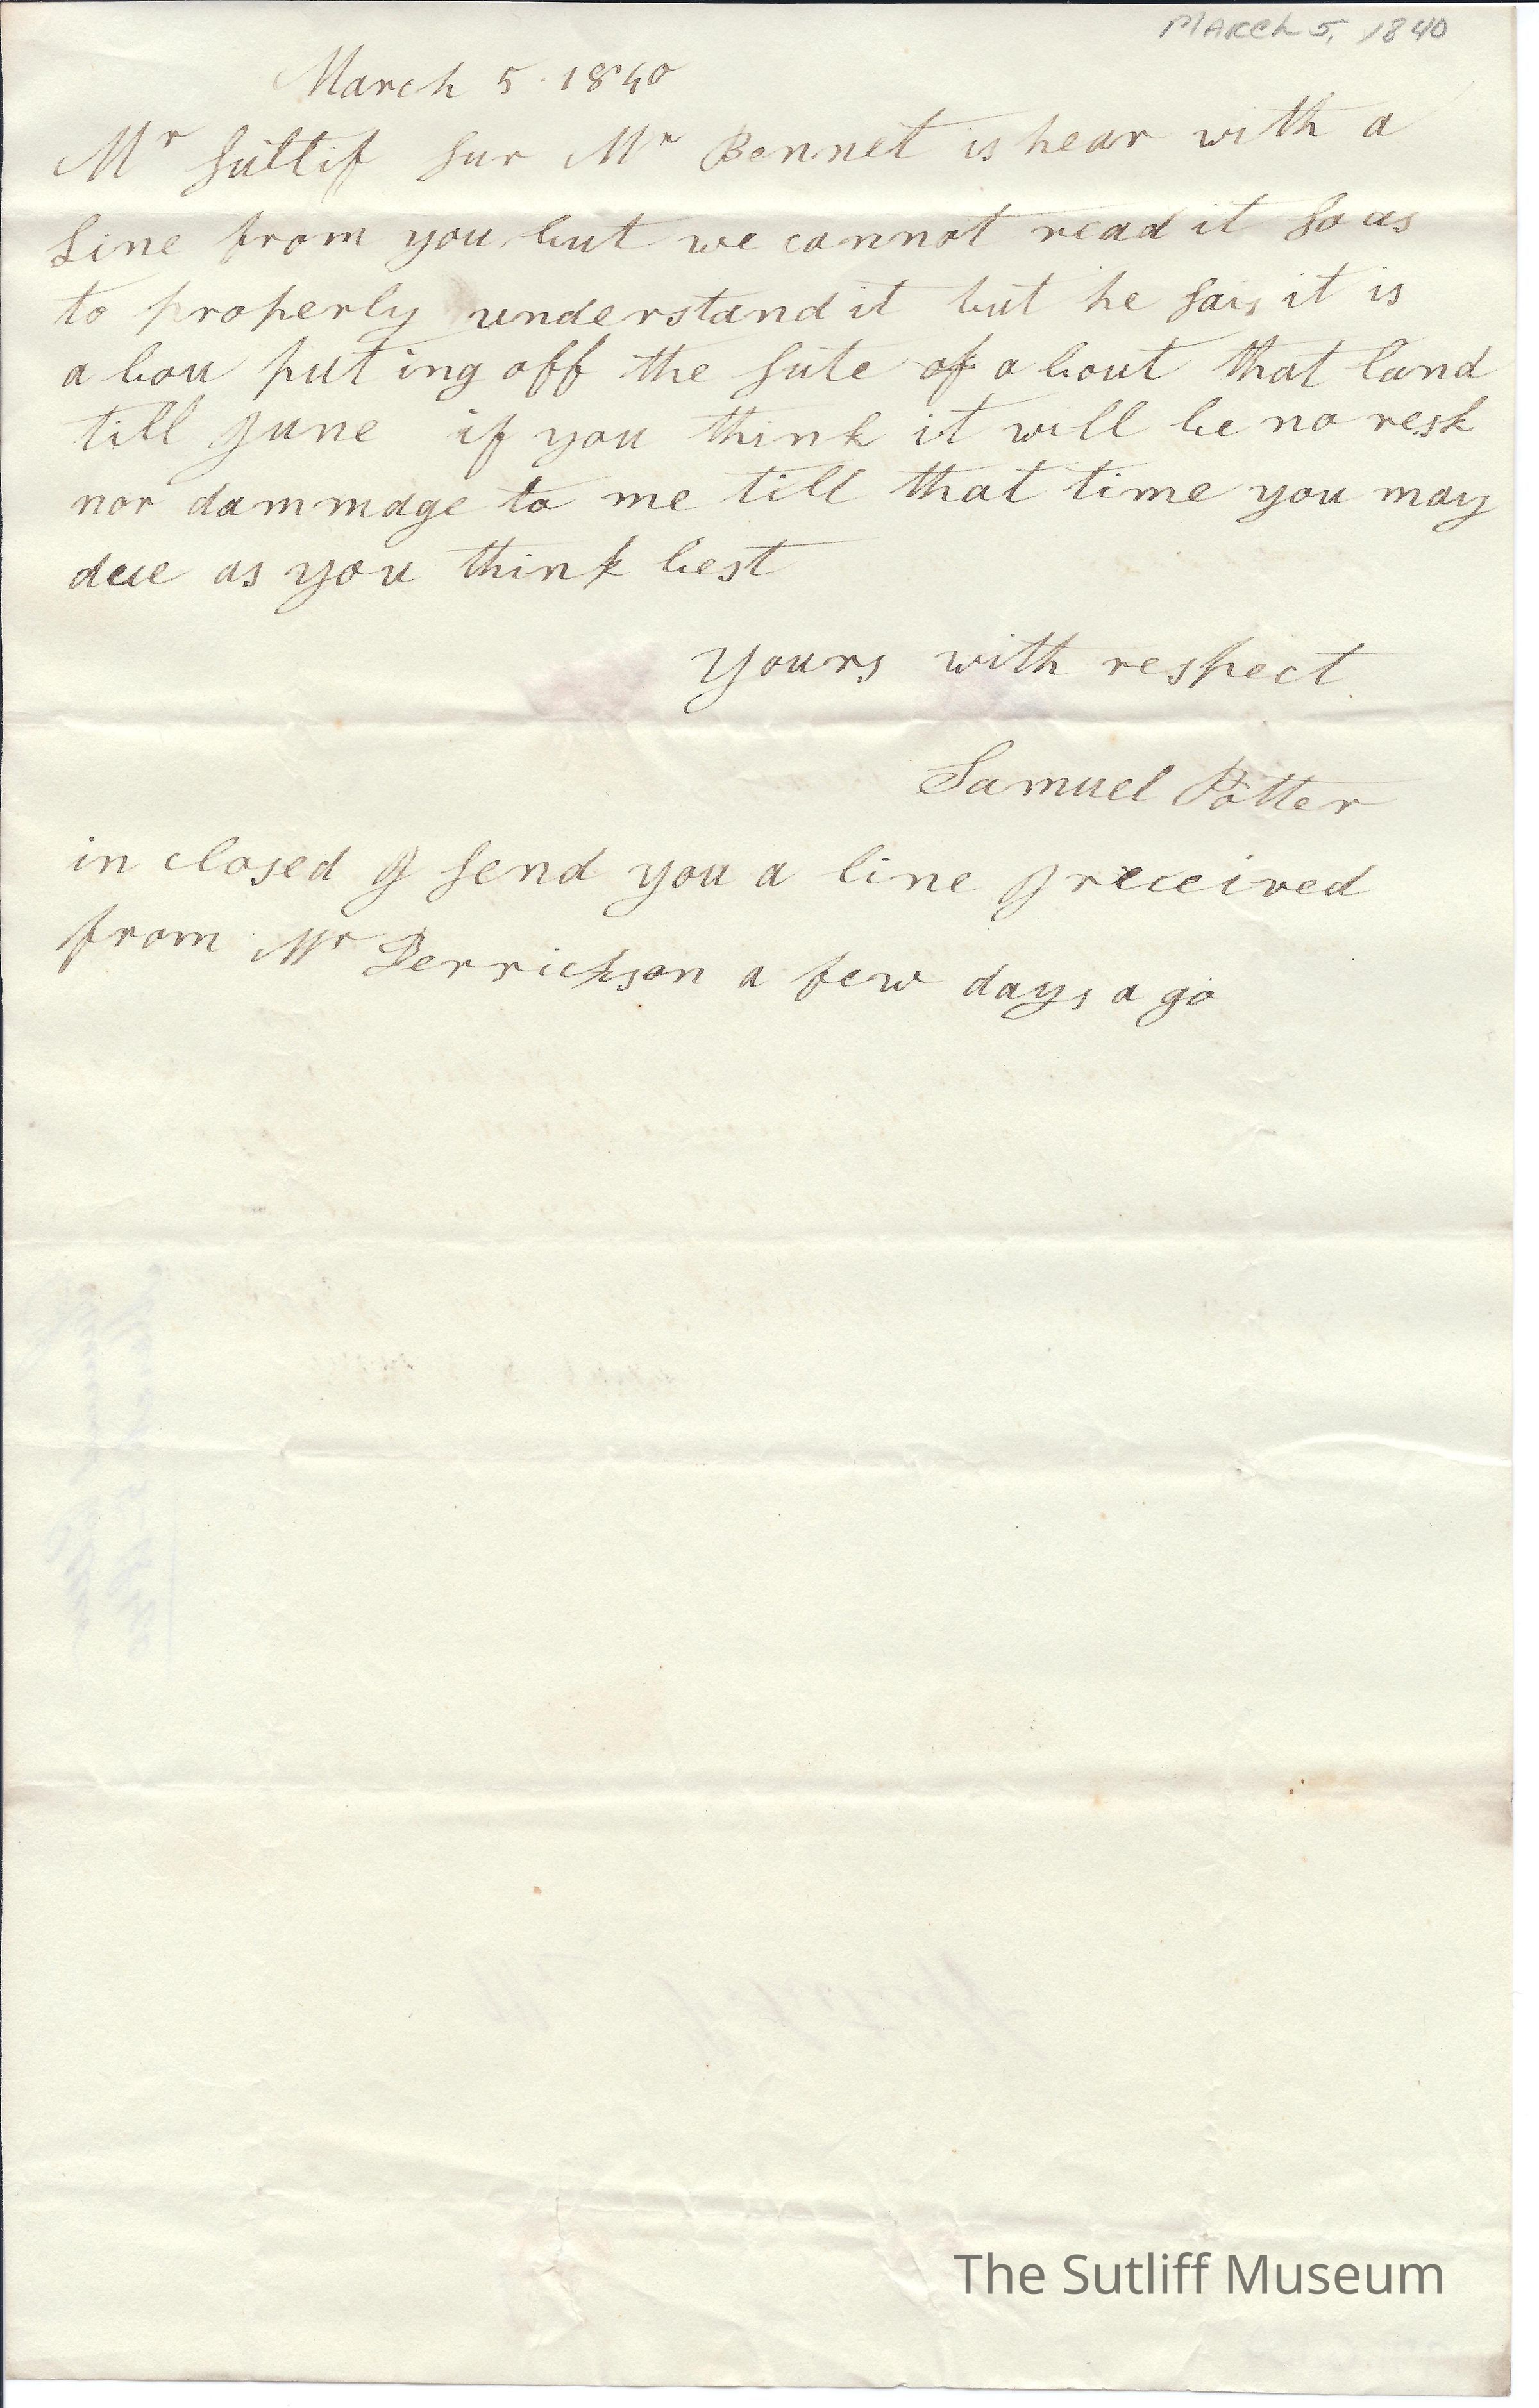 MARCH 5, 1840
March 5 · 1840
Mr Sutlif Sur Mr Bennet is hear with a
Line from you but we cannot read it So as
to properly understand it but he Sais it is
a bou put ing off the Sute of a bout that land
till June if you think it will be no resk
nor dammage to me till that time you may
due as you think best
Yours with respect
Samuel Potter
in closed I Send you a line I received
from Mr Derrickson a few days a go
The Sutliff Museum